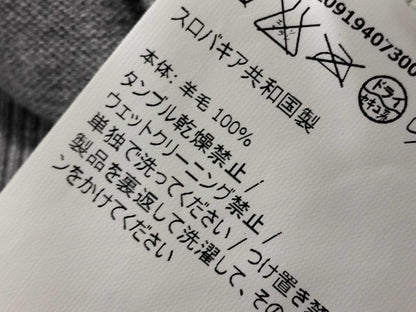 0919407300
ドライ
スロバキア共和国製
本体: 羊毛 100%
タンブル乾燥禁止 /
ウェットクリーニング禁止 /
単独で洗ってください / つけ置き禁
製品を裏返して洗濯して、その
ンをかけてください